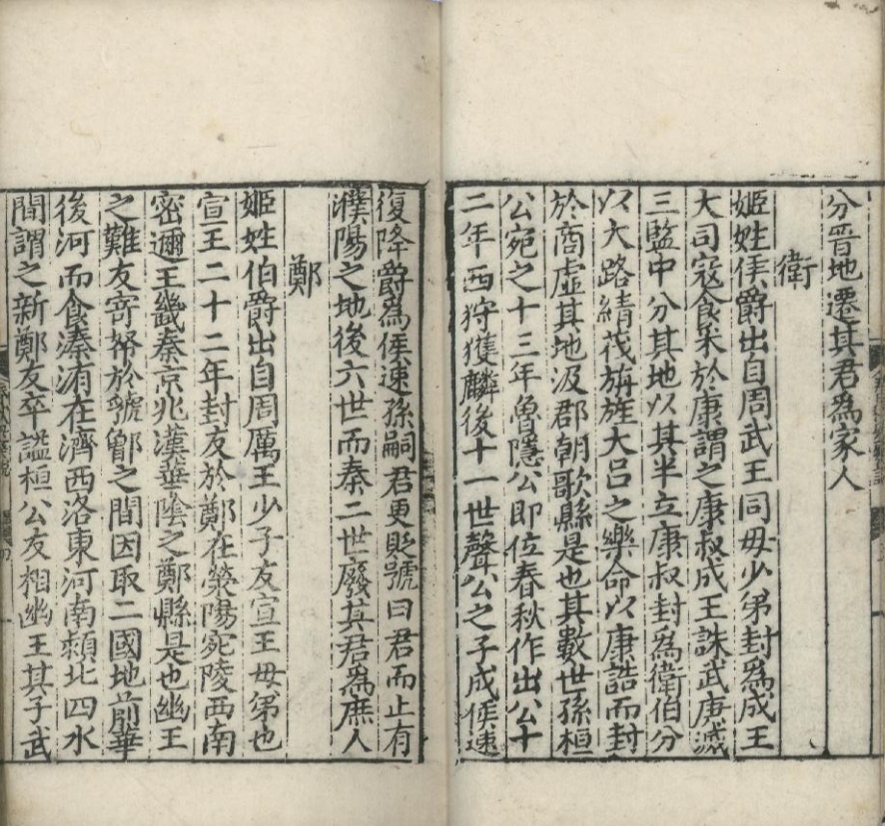 分晋地遷其君為家人
衛
姬姓侯爵出自周武王同毋少弟封為成王
大司寇食采於康謂之康叔成王誅武庚滅
三監中分其地以其半立康叔封為衛伯分
以大路綪茷旃旌大吕之樂命以康誥而封
於商虛其地汲郡朝歌縣是也其數世孫桓
公宛之十三年魯隱公即位春秋作出公十
二年西狩獲麟後十一世聲公之子成侯速
復降爵為侯速孫嗣君更貶號曰君而止有
濮陽之地後六世而秦二世廢其君為庶人
鄭
姬姓伯爵出自周厲王少子友宣王毋弟也
宣王二十二年封友於鄭在滎陽宛陵西南
密邇王畿秦京兆漢華陰之鄭縣是也幽王
之難友寄帑於虢鄶之間因取二國地前華
後河而食溱洧在濟西洛東河南潁北四水
間謂之新鄭友卒謚桓公友相幽王其子武